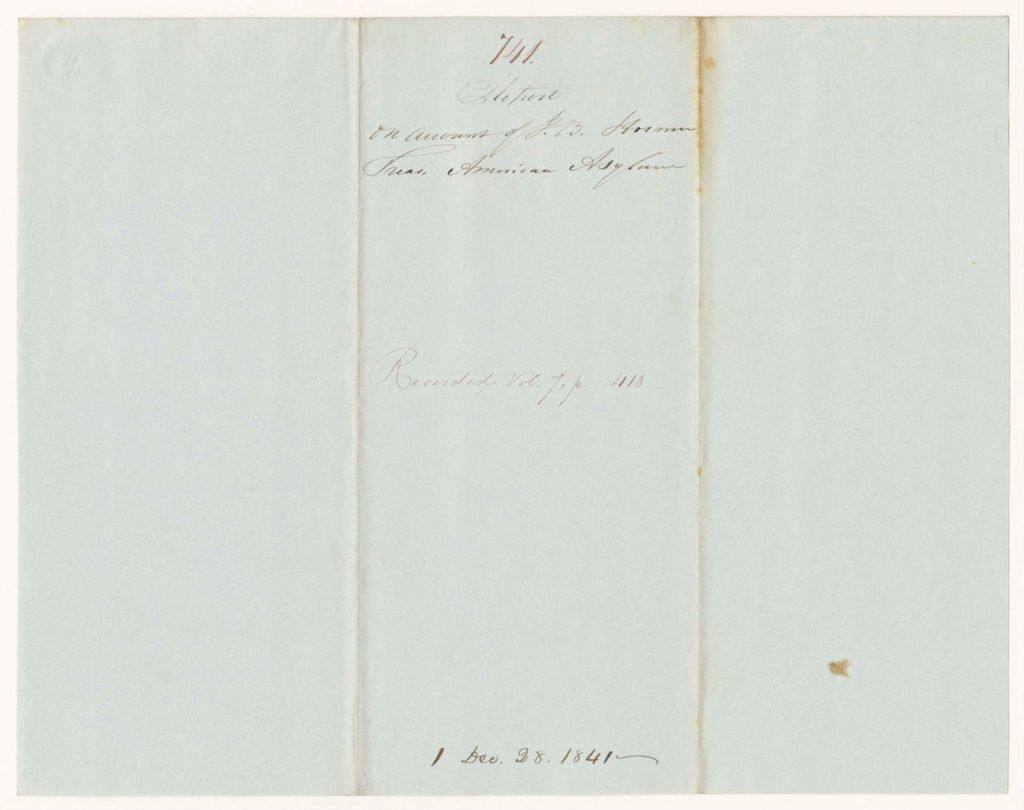 741.
Report
on account of J. B. Hosmer
Treas. American Asylum
Recorded Vol. 7, p. 413
1 Dec. 28. 1841